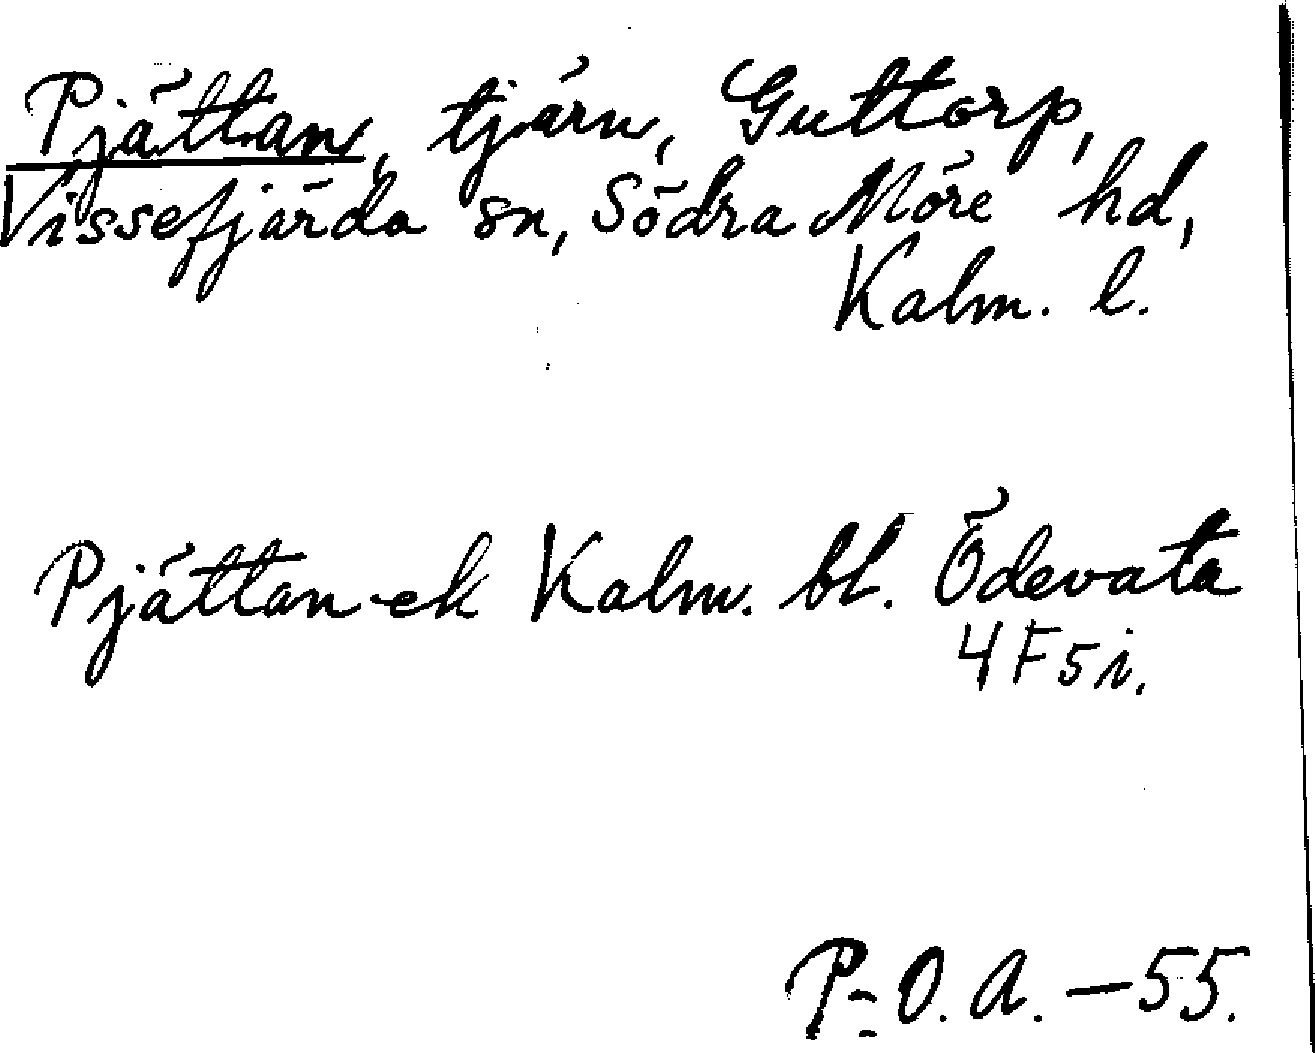 Pjättan, tjärn, Guttorp,
Vissefjärda sn, Södra Möre hd,
Kalm. l.
Pjättan ek Kalm. bl. Ödevata
4F5i.
P-O.A.-55.